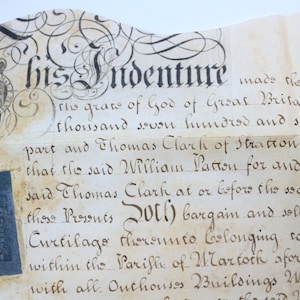 This Indenture made the
the grace of God of Great Brita
thousand seven hundred and s
part and Thomas Clark of Stratton
that the said William Patten for and
said Thomas Clark at or before the se
these Presents Doth bargain and sel
Curtilage thereunto belonging to
within the Parish of Martock afore
with all Outhouses Buildings